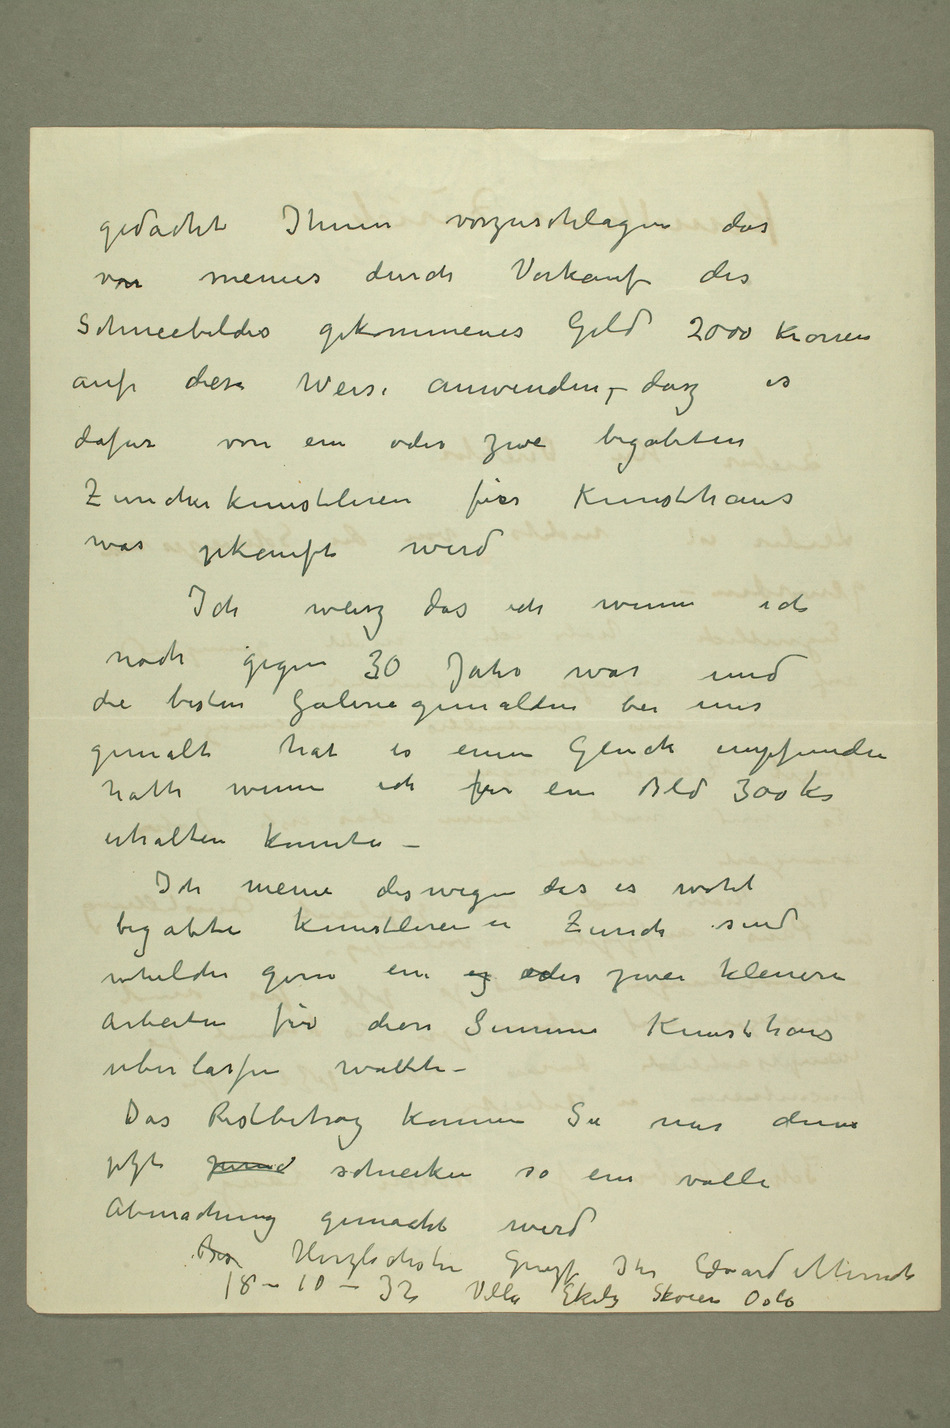 gedacht Ihnen vorzuschlagen das
von meines durch Verkauf des
Schneebildes gekommenes Geld 2000 Kronen
auf diese Weise anwenden,– dasz es
dafür von ein oder zwei begabten
Züricherkünstleren fürs Kunsthaus
was gekauft wird
Ich weisz das ich wenn ich
noch gegen 30 Jahr war und
die besten Galeriegemälden bei uns
gemalt hat es einen Glück empfunden
hatte wenn ich für ein Bild 300 Kr
erhalten konnte –
Ich meine deswegen das es wohl
begabte Künstleren in Zürich sind
whelche gern ein oder zwei kleinere
Arbeiten für diese Summe Kunsthaus
uberlassen wollte –
Das Restbetrag können Sie mir denn
jetzt schicken so ein volle
Abmachung gemacht wird
Herzlichsten Grusz Ihr Edvard Munch
18 – 10 – 32 Villa Ekely Skøien Oslo